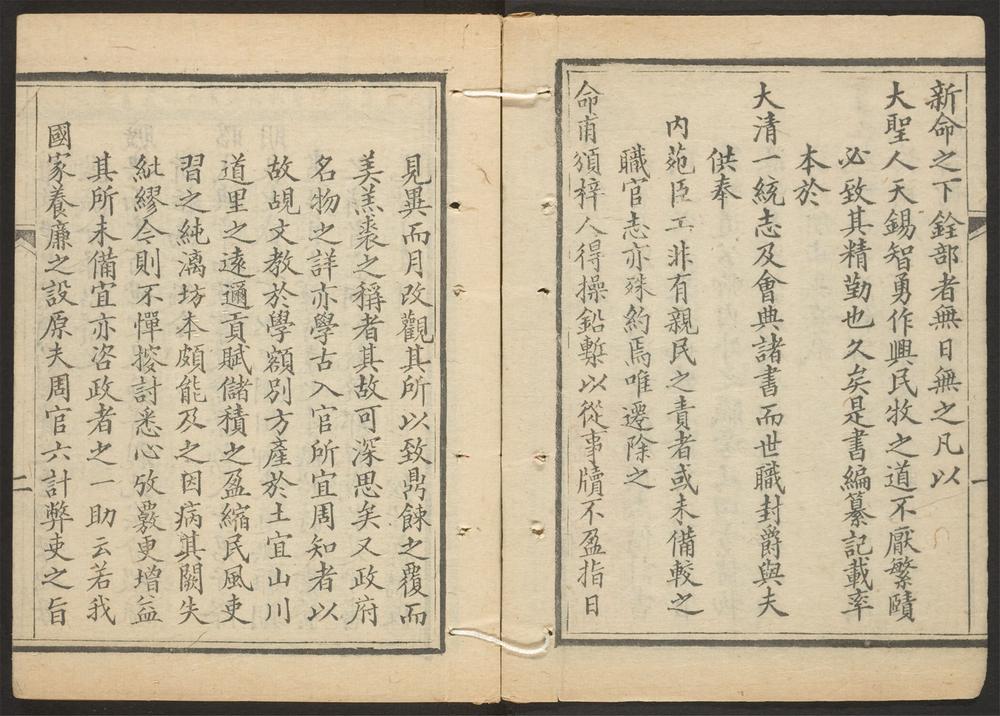 新命之下銓部者無日無之凡以
大聖人天錫智勇作興民牧之道不厭繁賾
必致其精勤也久矣是書編纂記載率
本於
大清一統志及會典諸書而世職封爵與夫
供奉
內苑臣工非有親民之責者或未備較之
職官志亦殊約焉唯遷除之
命甫頒梓人得操鉛槧以從事牘不盈指日
一
見異而月改觀其所以致鼎餗之覆而
美羔裘之稱者其故可深思矣又政府
名物之詳亦學古入官所宜周知者以
故覘文教於學額別方產於土宜山川
道里之遠邇貢賦儲積之盈縮民風吏
習之純漓坊本頗能及之因病其闕失
紕繆今則不憚搜討悉心攷覈更增益
其所未備宜亦咨政者之一助云若我
國家養廉之設原夫周官六計弊吏之旨
二